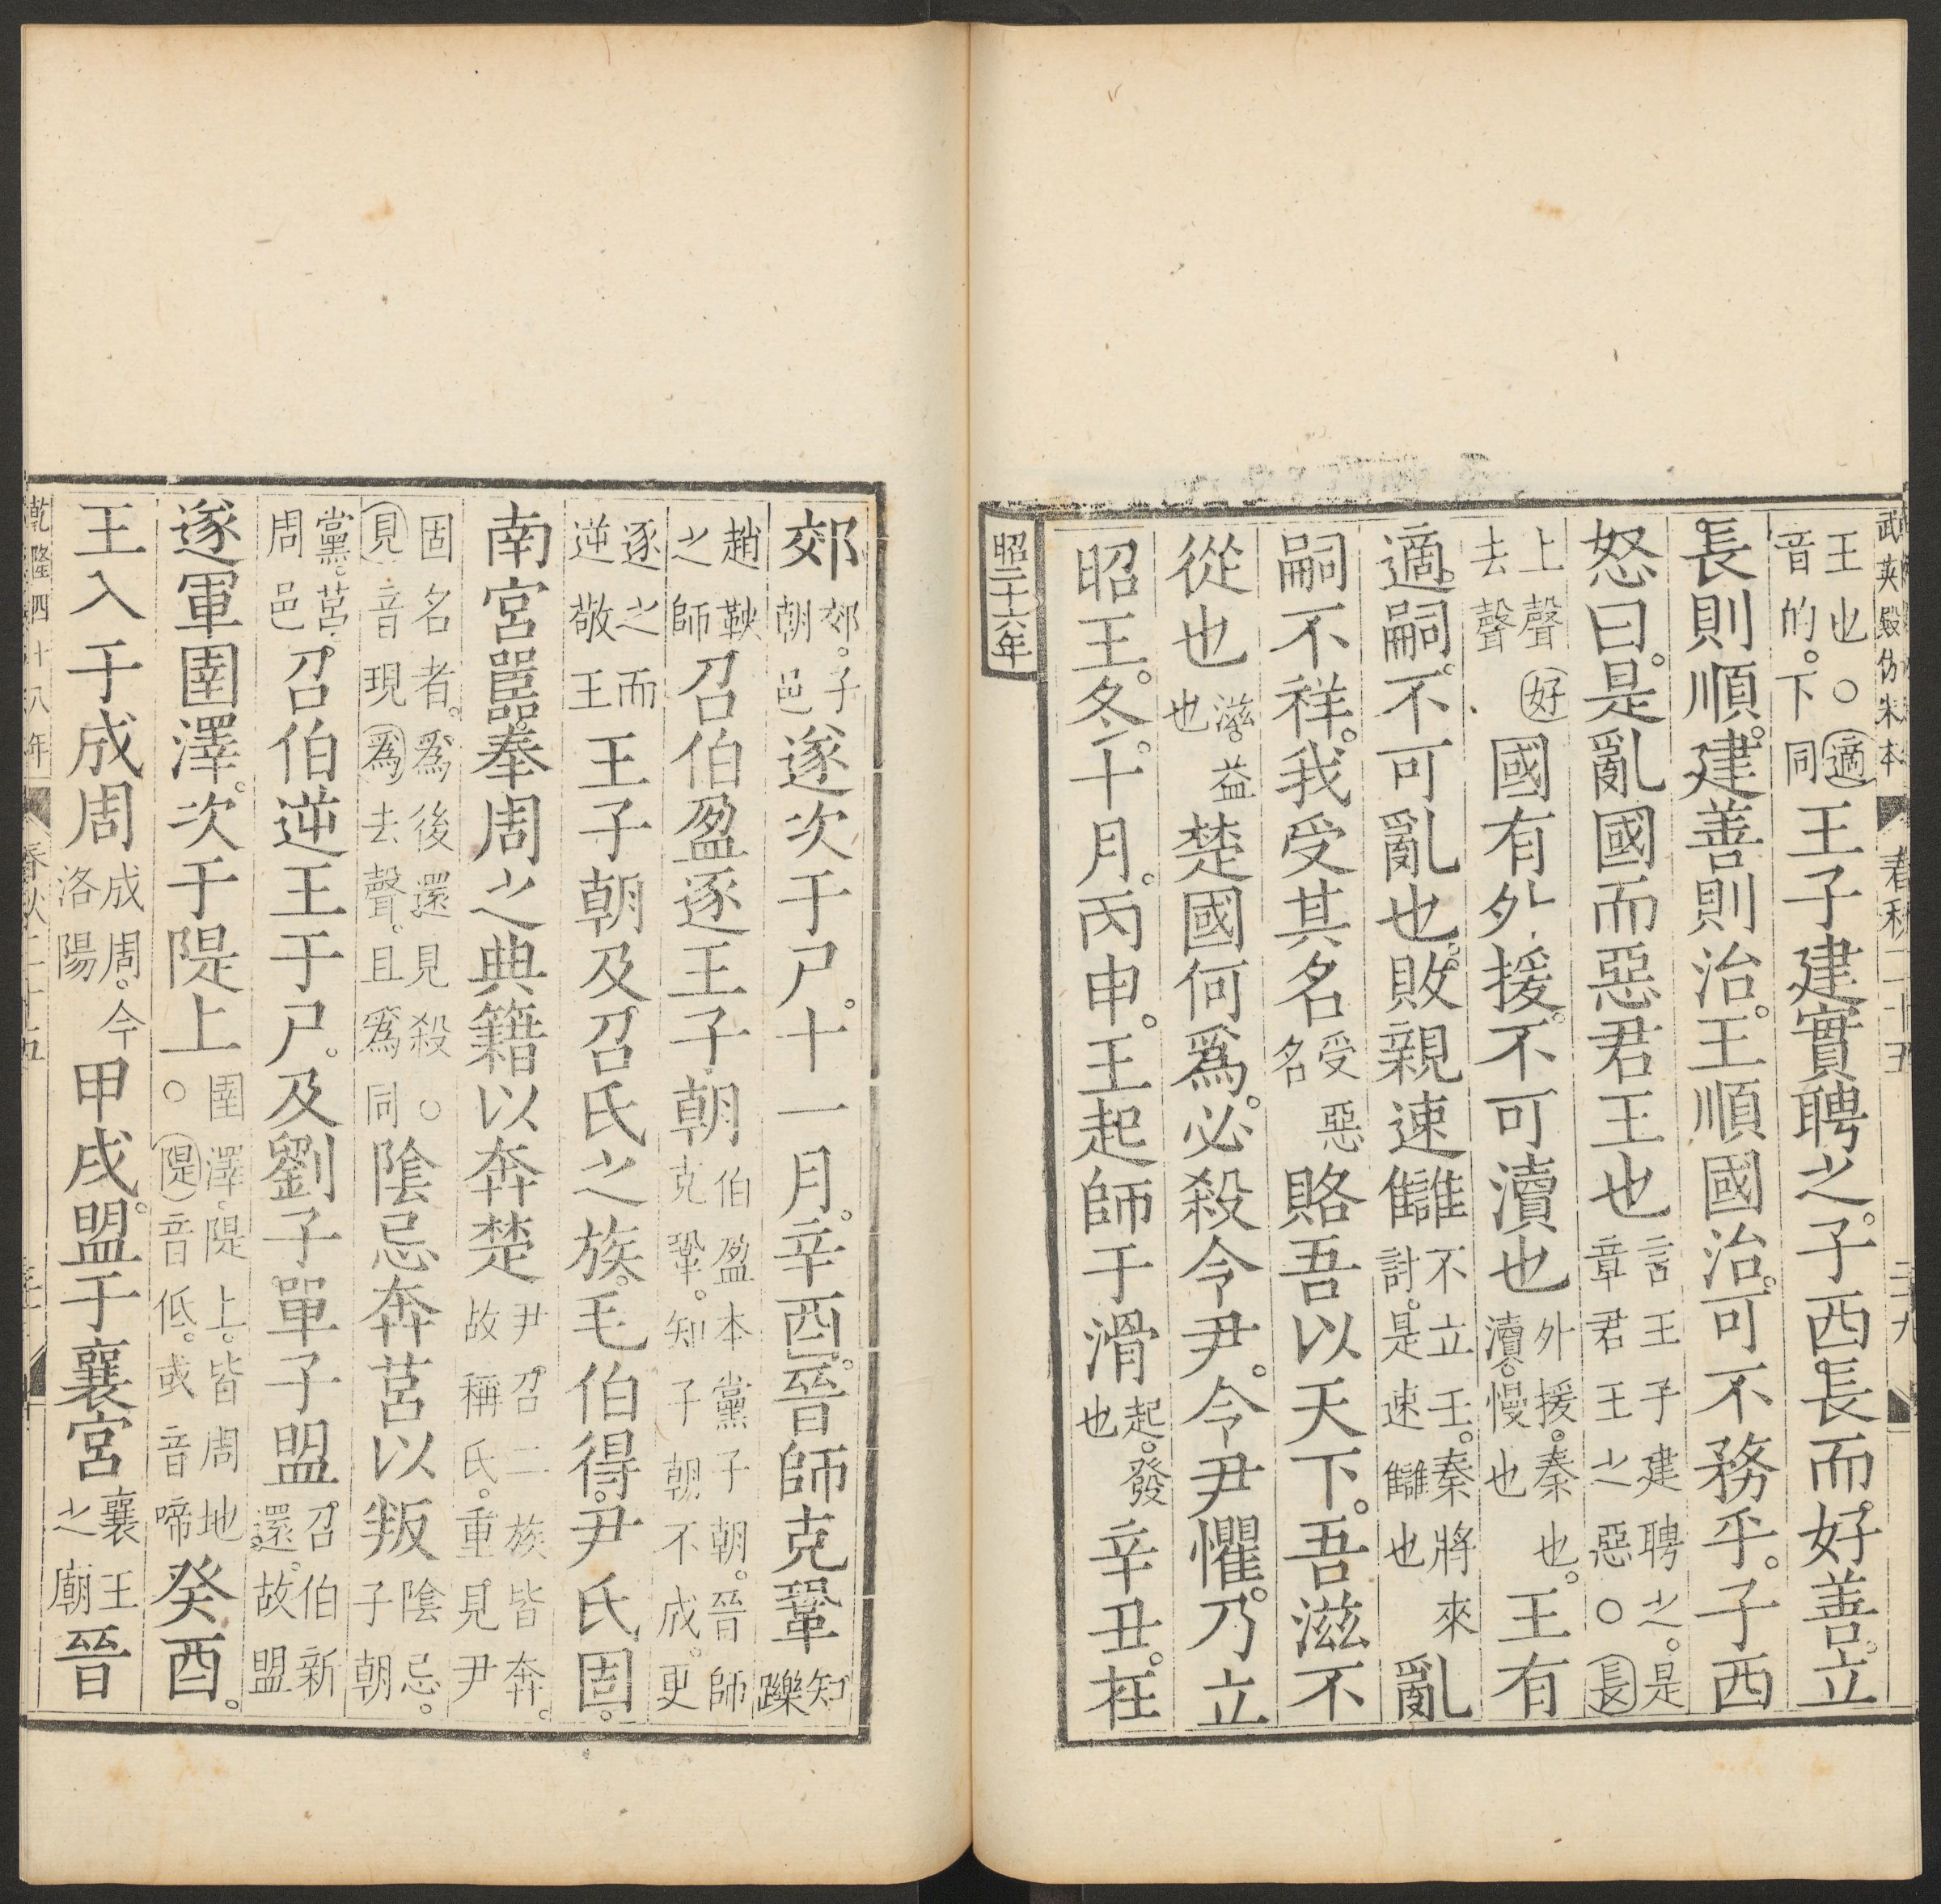 武英殿仿宋本 春秋二十五 三九
王也○適音的。下同王子建實聘之。子西長而好善。立
長則順。建善則治。王順國治。可不務乎。子西
怒曰。是亂國而惡君王也言王子建聘之。是章君王之惡○長
上聲好去聲國有外援。不可瀆也外援。秦也。瀆。慢也王有
適嗣。不可亂也。敗親速讎不立王。秦將來討。是速讎也亂
嗣不祥。我受其名受惡名賂吾以天下。吾滋不
從也滋。益也楚國何爲。必殺令尹。令尹懼。乃立
昭王。冬。十月。丙申。王起師于滑起。發也辛丑。在
昭二十六年
郊郊。子朝邑遂次于尸。十一月。辛酉。晉師克鞏知躒
趙鞅之師召伯盈逐王子朝伯盈本黨子朝。晉師克鞏。知子朝不成。更
逐之而逆敬王王子朝及召氏之族。毛伯得。尹氏固。
南宮嚚。奉周之典籍以奔楚尹。召二族皆奔。故稱氏。重見尹
固名者。爲後還見殺○見音現爲去聲。且爲同陰忌奔莒以叛陰忌。子朝
黨。莒。周邑召伯逆王于尸。及劉子單子盟召伯新還。故盟
遂軍圉澤。次于隄上圉澤。隄上。皆周地○隄音低。或音啼癸酉。
王入于成周成周。今洛陽甲戌。盟于襄宮襄王之廟晉
乾隆四十八年 春秋二十五